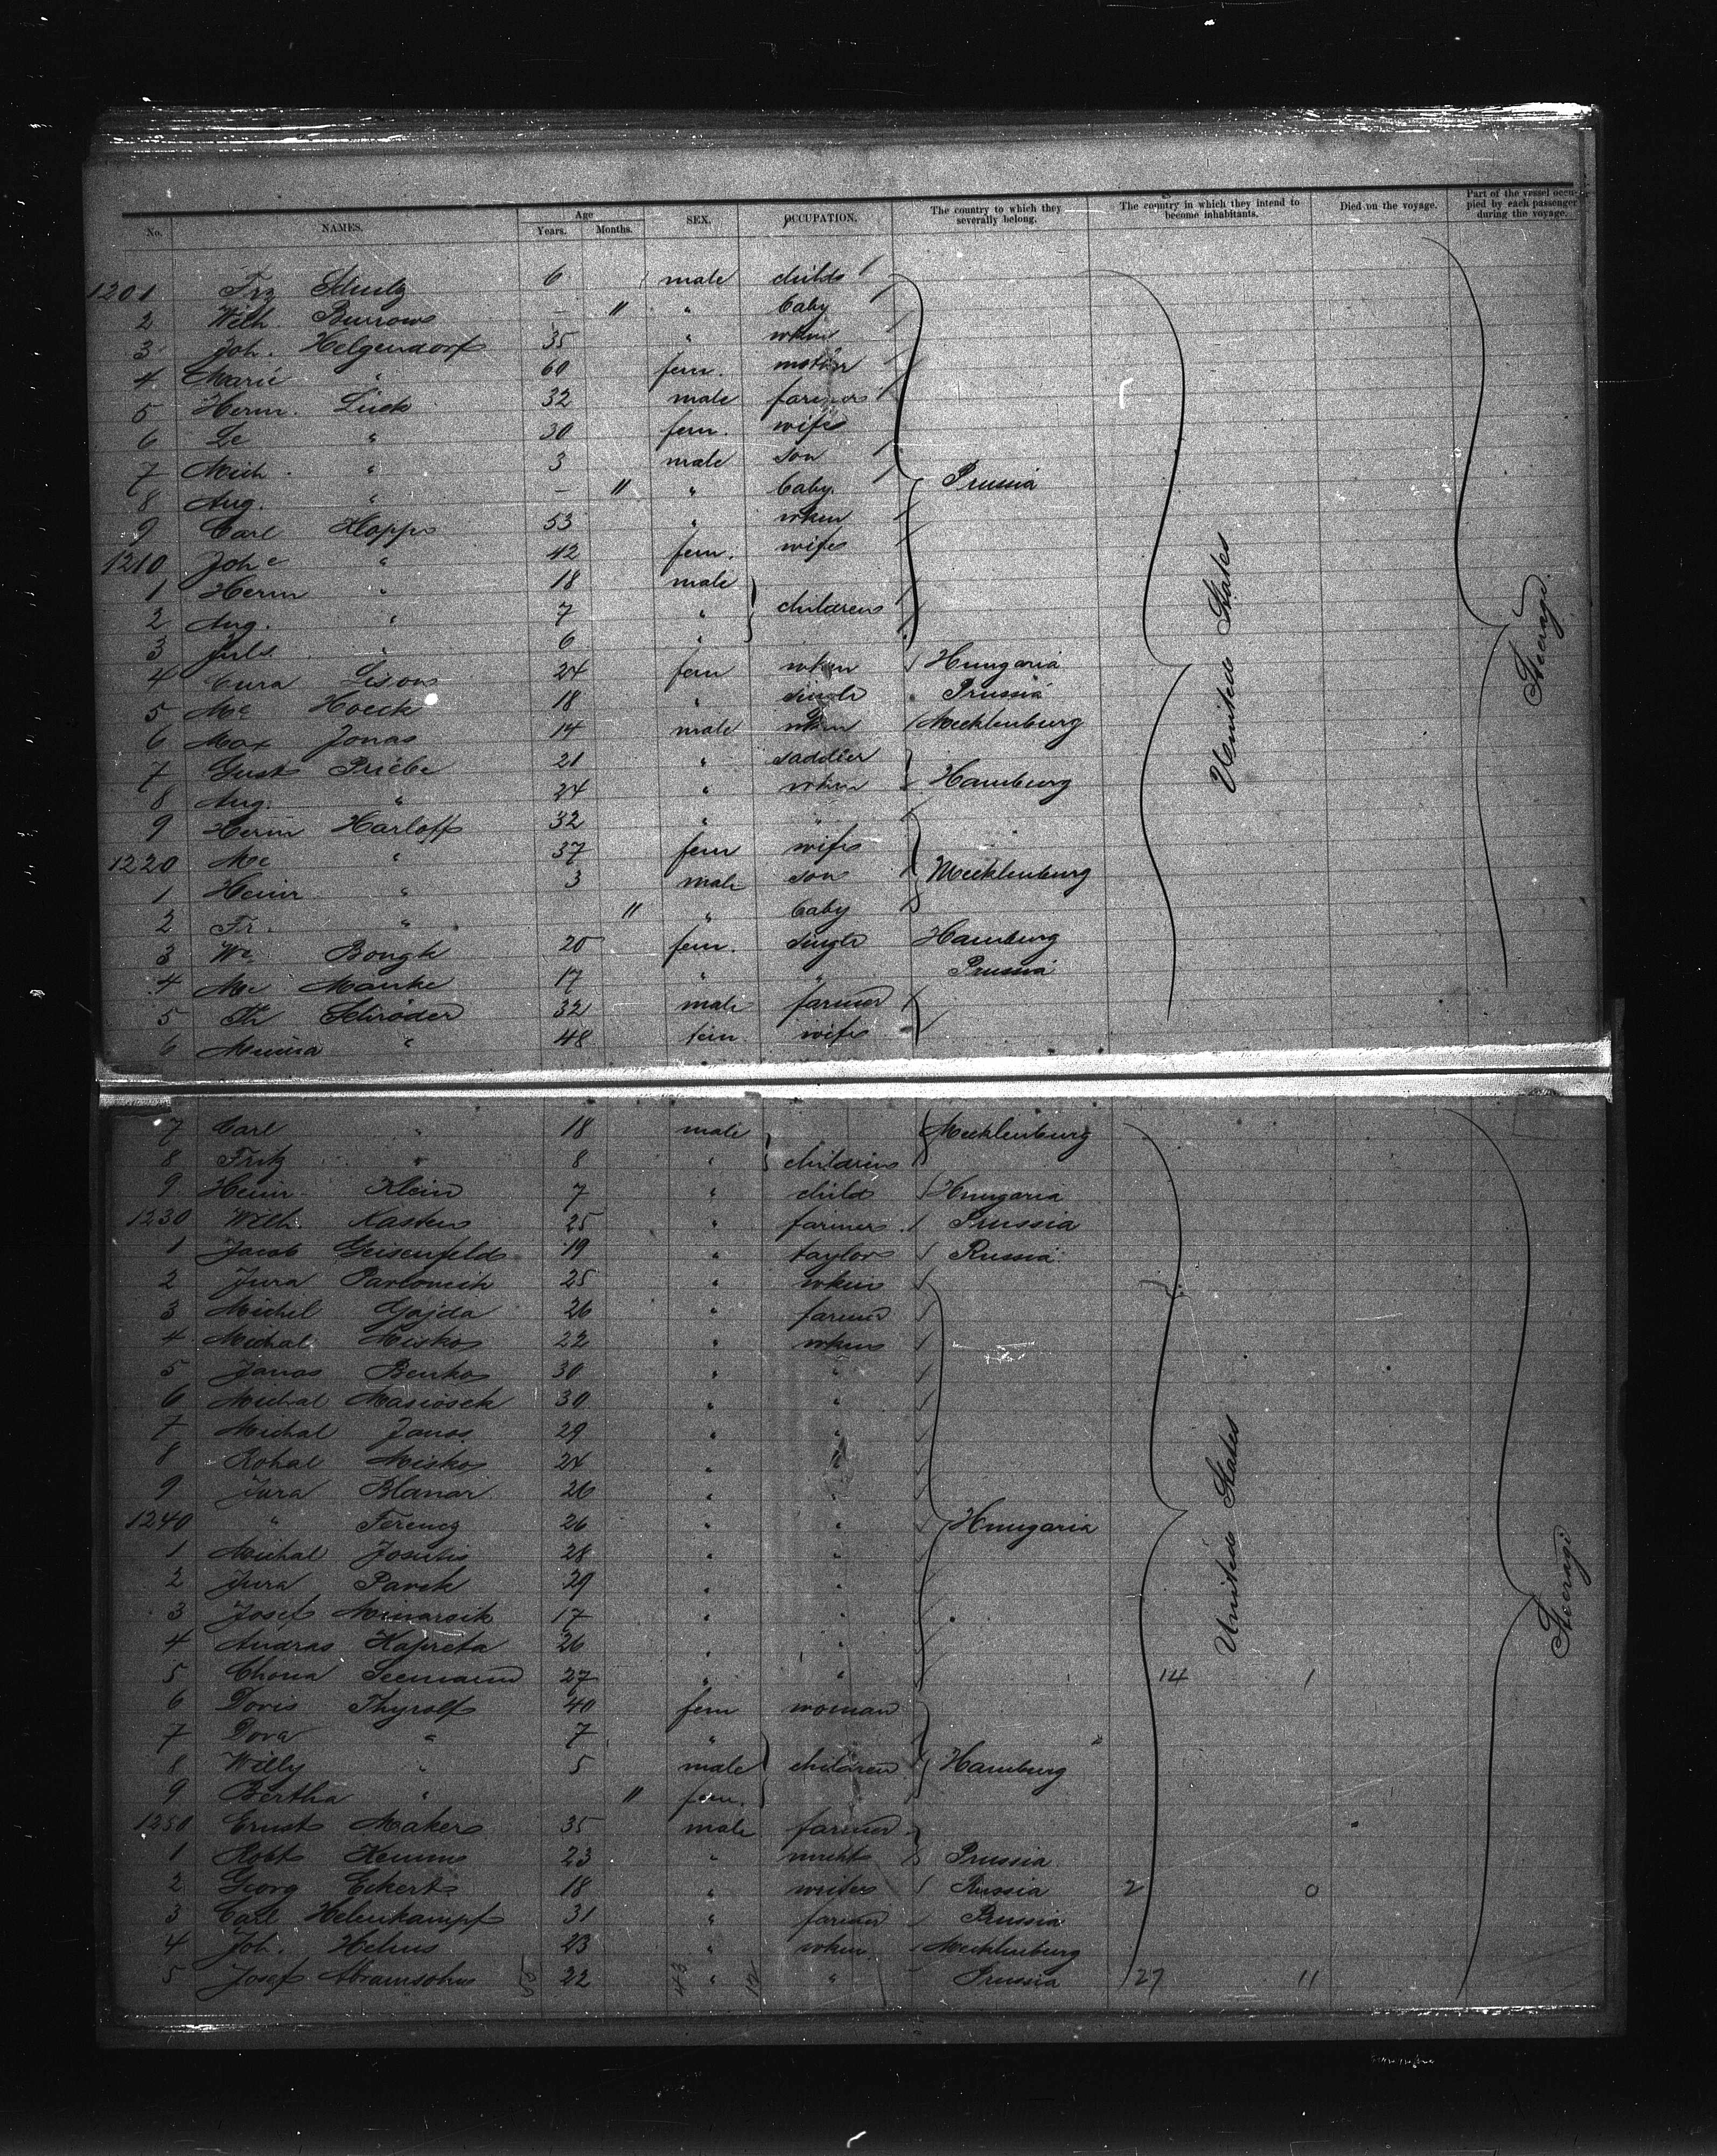 No. NAMES. Age Years. Months. SEX. OCCUPATION. The country to which they severally belong. The country in which they intend to become inhabitants. Died on the voyage. Part of the vessel occupied by each passenger during the voyage.
1201 Frz Schulz 6 male child
2 Wilh. Burrow — 11 " baby
3 Joh. Helgendorf 35 " wkm
4 Marie " 60 fem. mother
5 Herm. Lück 32 male farmer
6 " 30 fem. wife
7 Mich. " 3 male son Prussia
8 Aug. " — 11 " baby
9 Carl Hopp 53 " wkm
1210 Joh e " 42 fem. wife
1 Herm " 18 male
2 Aug. " 7 " children
3 Juls " 6 "
4 24 fem wkm Hungaria
5 Me Hoeck 18 " single Prussia
6 Max Jonas 14 male wkm Mecklenburg
7 Gust Priebe 21 " saddler
8 Aug. " 24 " wkm Hamburg
9 Herm Harloff 32 " "
1220 Me " 37 fem wife
1 Heinr " 3 male son Mecklenburg
2 Fr. " 11 " baby
3 We Bongk 20 fem. single Hamburg
4 Me Manke 17 " " Prussia
5 Th Schröder 32 male farmer
6 Minna " 48 fem wife
United States
Steerage
7 Carl " 18 male Mecklenburg
8 Fritz " 8 " children
9 Heinr. Klein 7 " child Hungaria
1230 Wilh. Kasten 25 " farmer Prussia
1 Jacob Geisenfeld 19 " taylor Russia
2 Jura Pavlomik 25 " wkm
3 Michel Gajda 26 " farmer
4 Michal Misko 22 " wkm
5 Janos Benko 30 " "
6 Michal Masiosek 30 " "
7 Michal Janos 29 " "
8 Kohal Misko 24 " "
9 Jura Blanar 26 " "
1240 " Ferencz 26 " " Hungaria
1 Michal 28 " "
2 Jura Pavek 29 " "
3 Josef Minarsik 17 " "
4 Andras Kapreta 26 " "
5 Seemann 27 " " 14 1
6 Doris Thyrolf 40 fem woman
7 Dora " 7 "
8 Willy " 5 male children Hamburg
9 Bertha " 11 fem.
1250 Ernst Maker 35 male farmer
1 Robt Kemm 23 " mercht Prussia
2 Georg Eckert 18 " writer Russia 2 0
3 Carl Helenkampf 31 " farmer Prussia
4 Joh. Helms 23 " wkm Mecklenburg
5 Josef Abramsohn 22 43 " 12 " Prussia 27 11
United States
Steerage